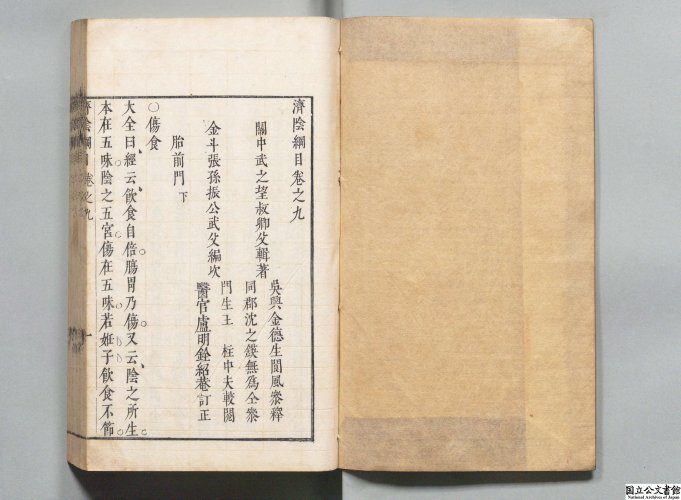 濟陰綱目卷之九
關中武之望叔卿父輯著
金斗張孫振公武父編次
吳興金德生閬風叅釋
同郡沈之鍈無為仝叅
門生王　柱中夫較閱
醫官盧明銓紹菴訂正
胎前門下
○傷食
大全曰經云飲食自倍腸胃乃傷又云陰之所生
本在五味陰之五宮傷在五味若姙子飲食不節
濟陰綱目　卷之九
一
国立公文書館
National Archives of Japan